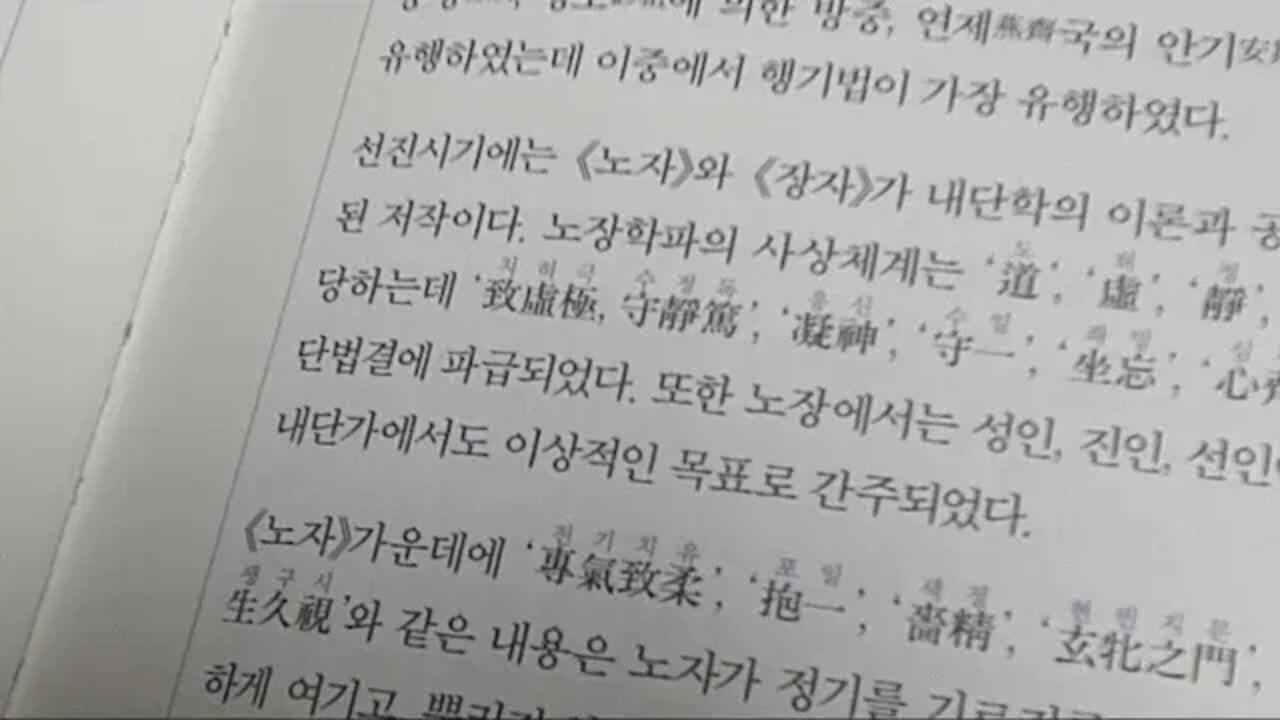 에 의한 방중, 언제燕齊국의 안기安
유행하였는데 이중에서 행기법이 가장 유행하였다.
선진시기에는 《노자》와 《장자》가 내단학의 이론과
된 저작이다. 노장학파의 사상체계는 ‘道’, ‘虛’, ‘靜’,
당하는데 ‘致虛極, 守靜篤’, ‘凝神’, ‘守一’, ‘坐忘’, ‘心
단법결에 파급되었다. 또한 노장에서는 성인, 진인, 선인
내단가에서도 이상적인 목표로 간주되었다.
《노자》가운데에 ‘專氣致柔’, ‘抱一’, ‘嗇精’, ‘玄牝之門’,
生久視’와 같은 내용은 노자가 정기를
하게 여기고,